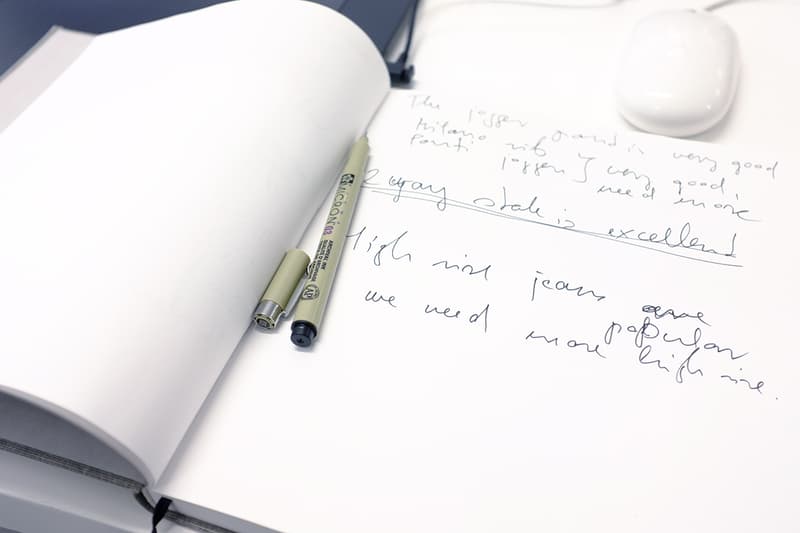 The jogger trend is very good
Milano rib } very good,
Ponti joggers } need more
2 way is excellent
High rise jeans are
popular
we need more high rise.
MICRON 03
ARCHIVAL INK